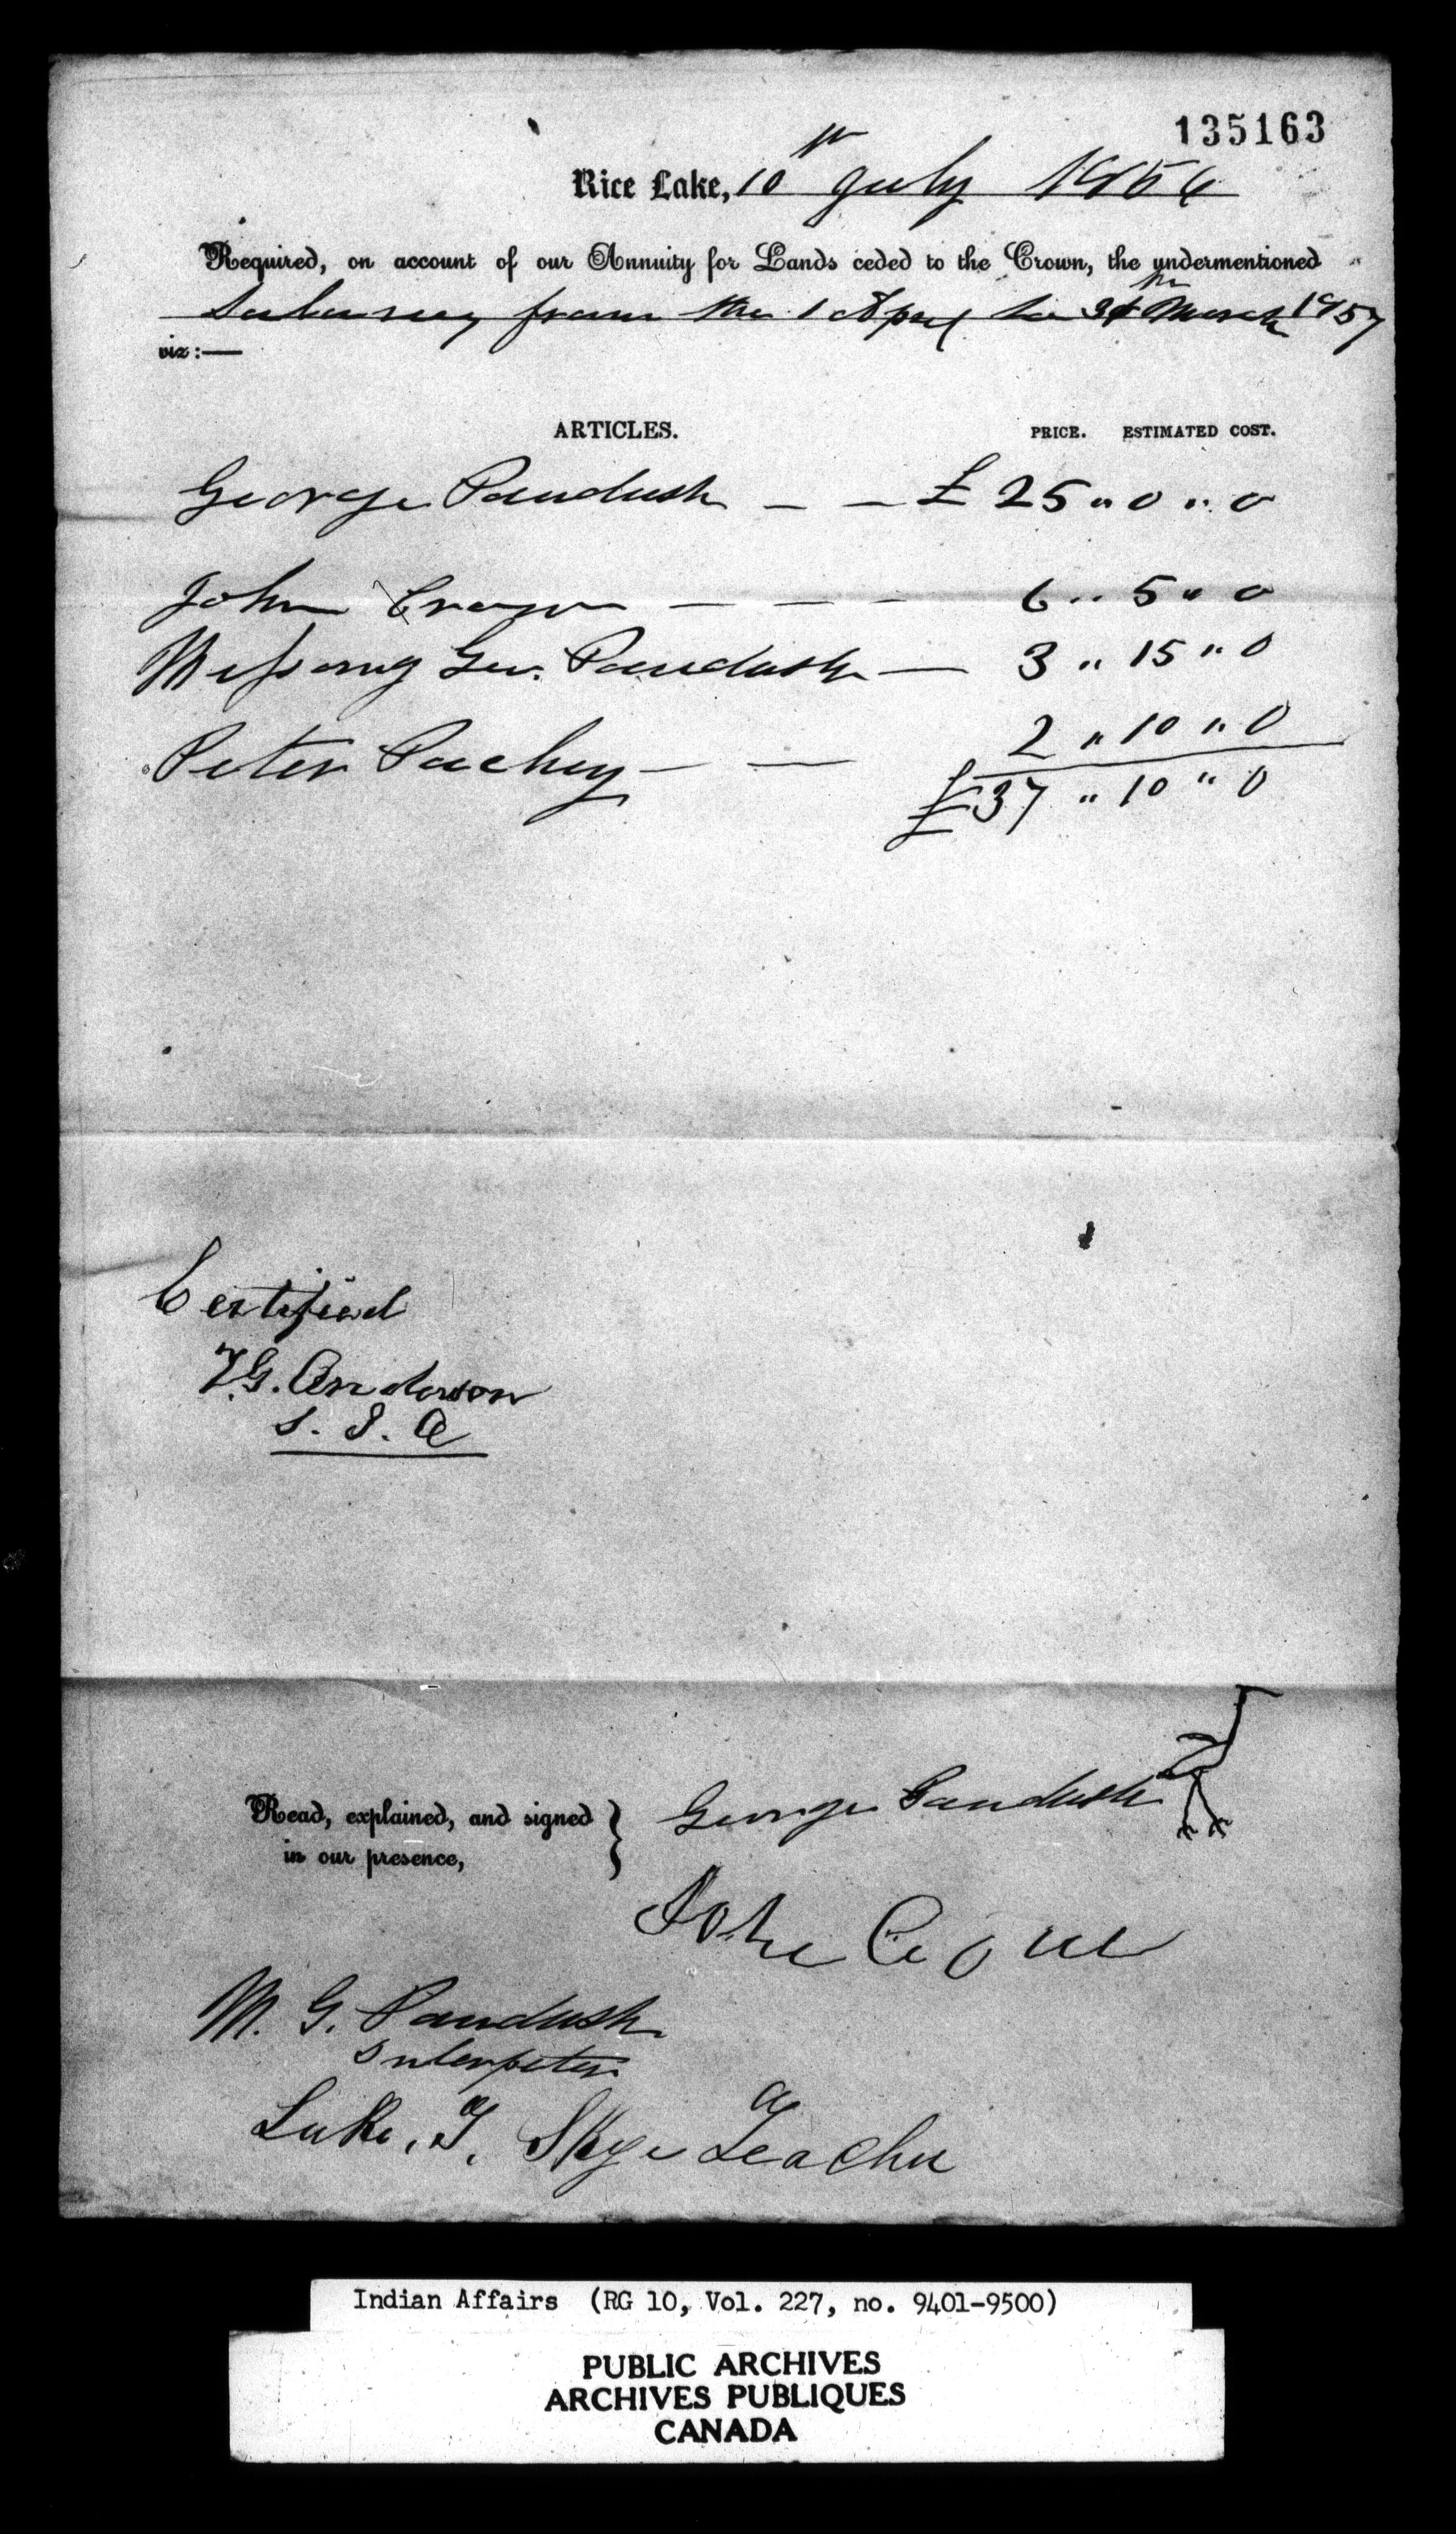 135163
Rice Lake, 10th July 1856
Required, on account of our Annuity for Lands ceded to the Crown, the undermentioned
from the 1 April to 31 March 1857
viz:—
ARTICLES. PRICE. ESTIMATED COST.
George Paudush — — £ 25 " 0 " 0
John Crow — — — 6 " 5 " 0
Geo. Paudash — 3 " 15 " 0
Peter — — 2 " 10 " 0
£ 37 " 10 " 0
Certified
T.G. Anderson
S. I. A
Read, explained, and signed } George Paudush
in our presence,
John
M. G. Paudush
Interpeter
Luke. T. Skye a Teacher
Indian Affairs (RG 10, Vol. 227, no. 9401-9500)
PUBLIC ARCHIVES
ARCHIVES PUBLIQUES
CANADA